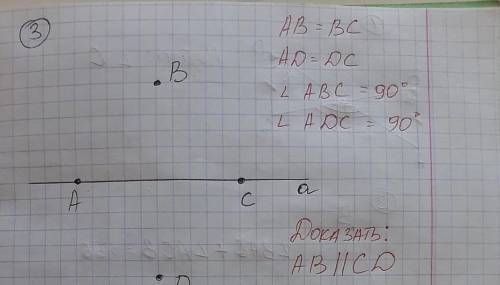 3
AB = BC
AD = DC
∠ ABC = 90°
∠ ADC = 90°
B
A
C
a
Доказать:
AB || CD
D